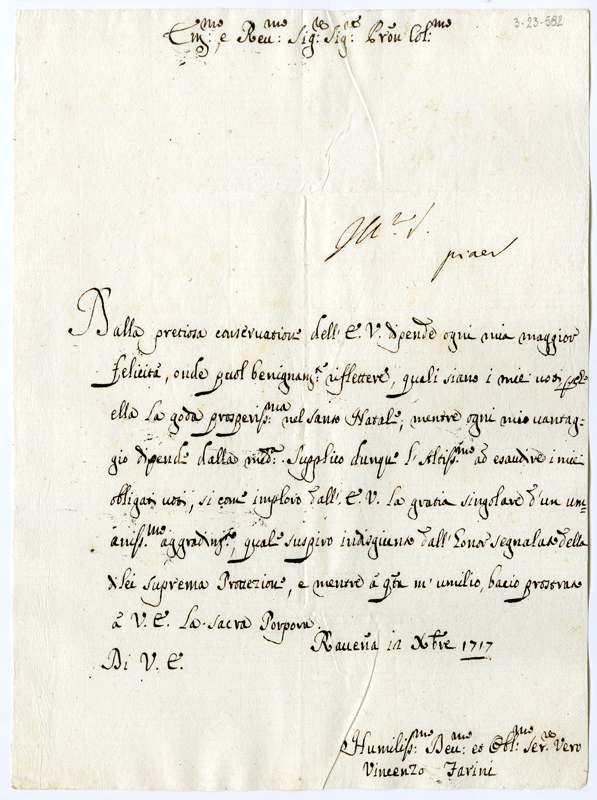 3-23-582
Em:mo e Reu:mo Sig:re Sig:re Prõn Col:mo
Dalla pretiosa conseruatione dell' E. V. dipende ogni mia maggior
felicità, onde puol benignam:te riflettere, quali siano i miei uoti
ella la goda prosperiss:ma nel santo Natale; mentre ogni mio uantag-
gio dipende dalla med:ma. Supplico dunque l'Altiss:mo ad esaudire i miei
obligati uoti, si come imploro dall' E. V. la gratia singolare d'un um-
aniss:mo aggradim:to, quale suspiro indisgiunto dall' honor segnalato della
di Lei suprema Protezione, e mentre à q:ta m' umilio, bacio prostrato
à V. E. la sacra Porpora.
Rauenã 12 Xbre 1717
Di V. E.
Humiliss:mo Deu:mo et Obl:mo ser:re Vero
Vincenzo Farini